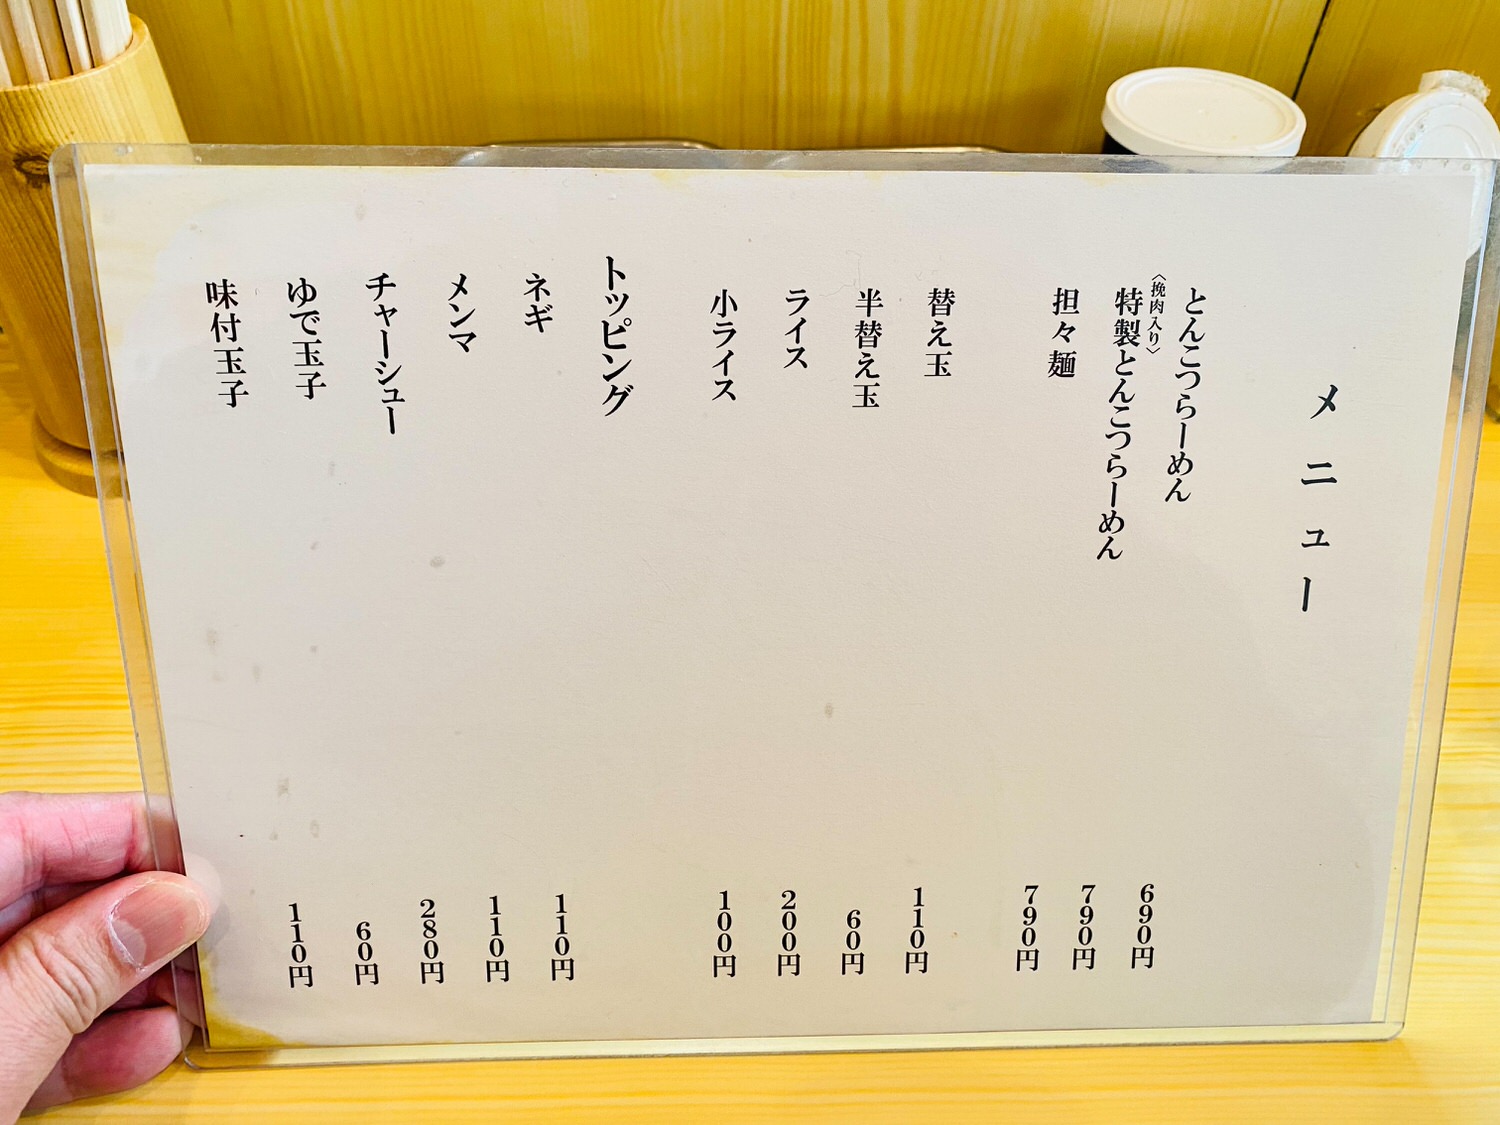 メニュー
とんこつらーめん 690円
〈挽肉入り〉
特製とんこつらーめん 790円
担々麺 790円
替え玉 110円
半替え玉 60円
ライス 200円
小ライス 100円
トッピング
ネギ 110円
メンマ 110円
チャーシュー 280円
ゆで玉子 60円
味付玉子 110円